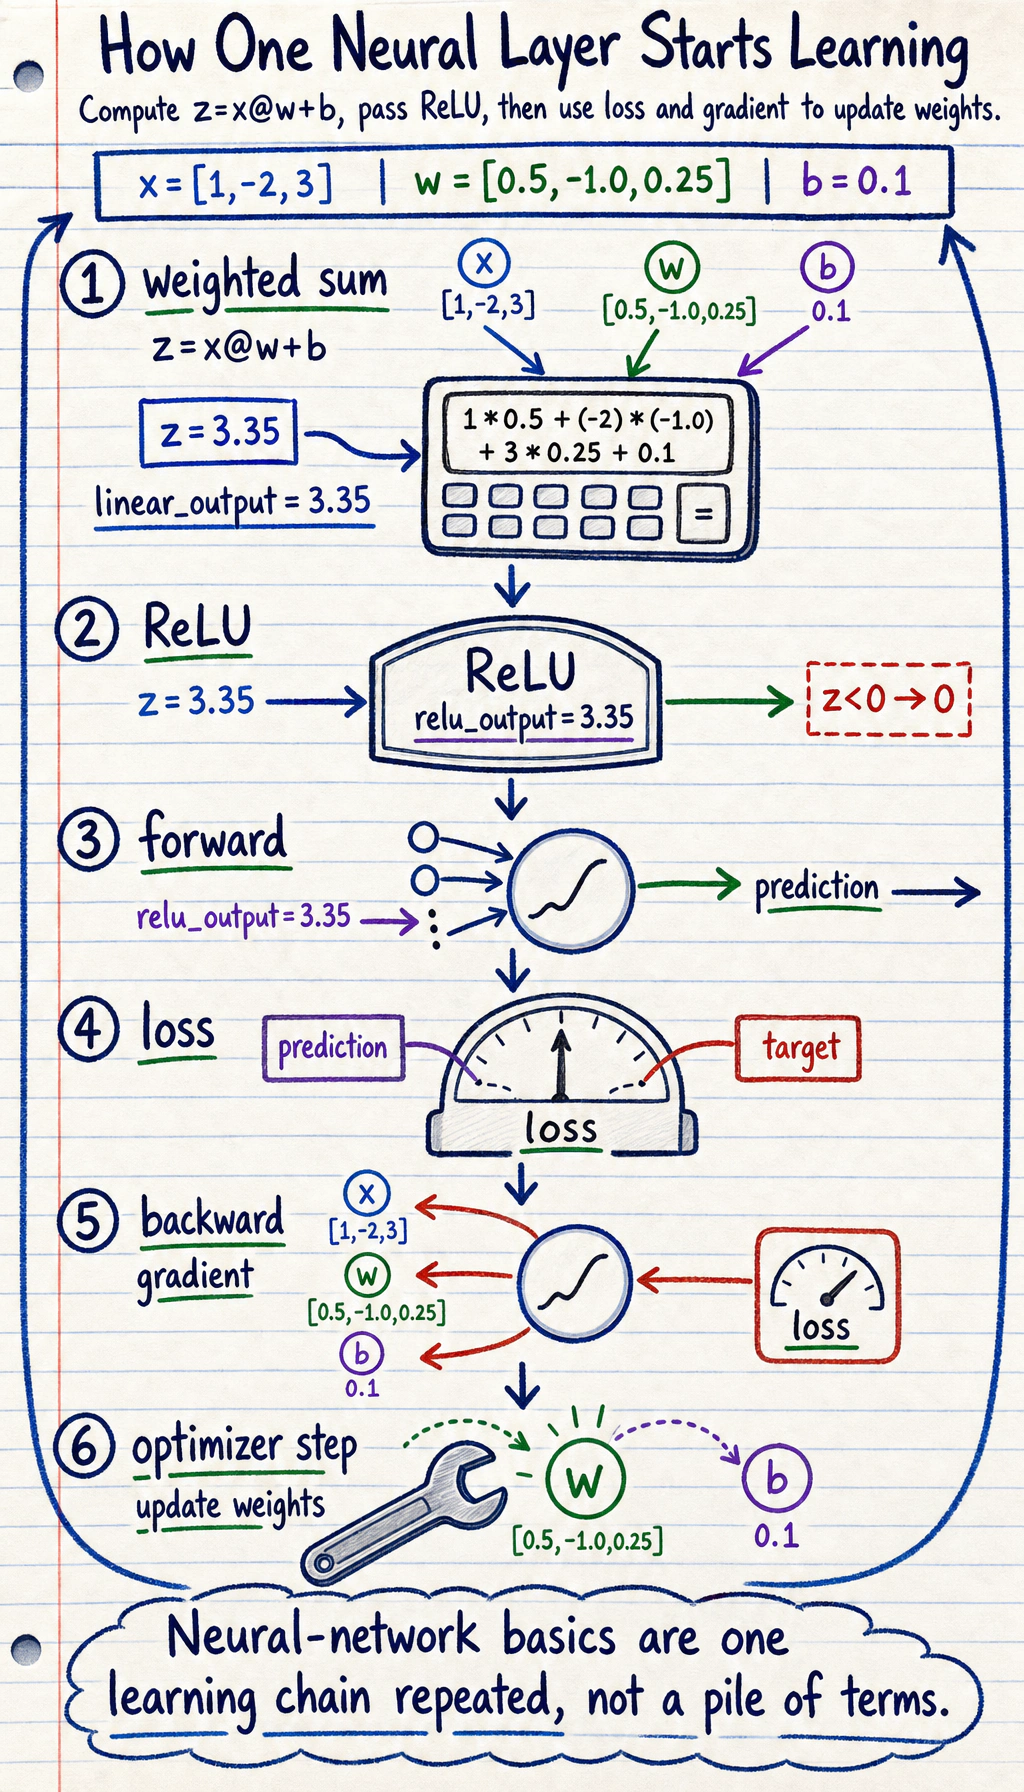 How One Neural Layer Starts Learning
Compute z=x@w+b, pass ReLU, then use loss and gradient to update weights.
x = [1,-2,3] | w = [0.5,-1.0,0.25] | b = 0.1
1 weighted sum
z=x@w+b
x
[1,-2,3]
w
[0.5,-1.0,0.25]
b
0.1
z = 3.35
linear_output = 3.35
1*0.5 + (-2)*(-1.0)
+ 3*0.25 + 0.1
=
2 ReLU
z = 3.35
ReLU
relu_output = 3.35
z<0→0
3 forward
relu_output = 3.35
prediction
4 loss
prediction
target
loss
5 backward
gradient
x
[1,-2,3]
w
[0.5,-1.0,0.25]
b
0.1
loss
6 optimizer step
update weights
w
[0.5,-1.0,0.25]
b
0.1
Neural-network basics are one
learning chain repeated, not a pile of terms.